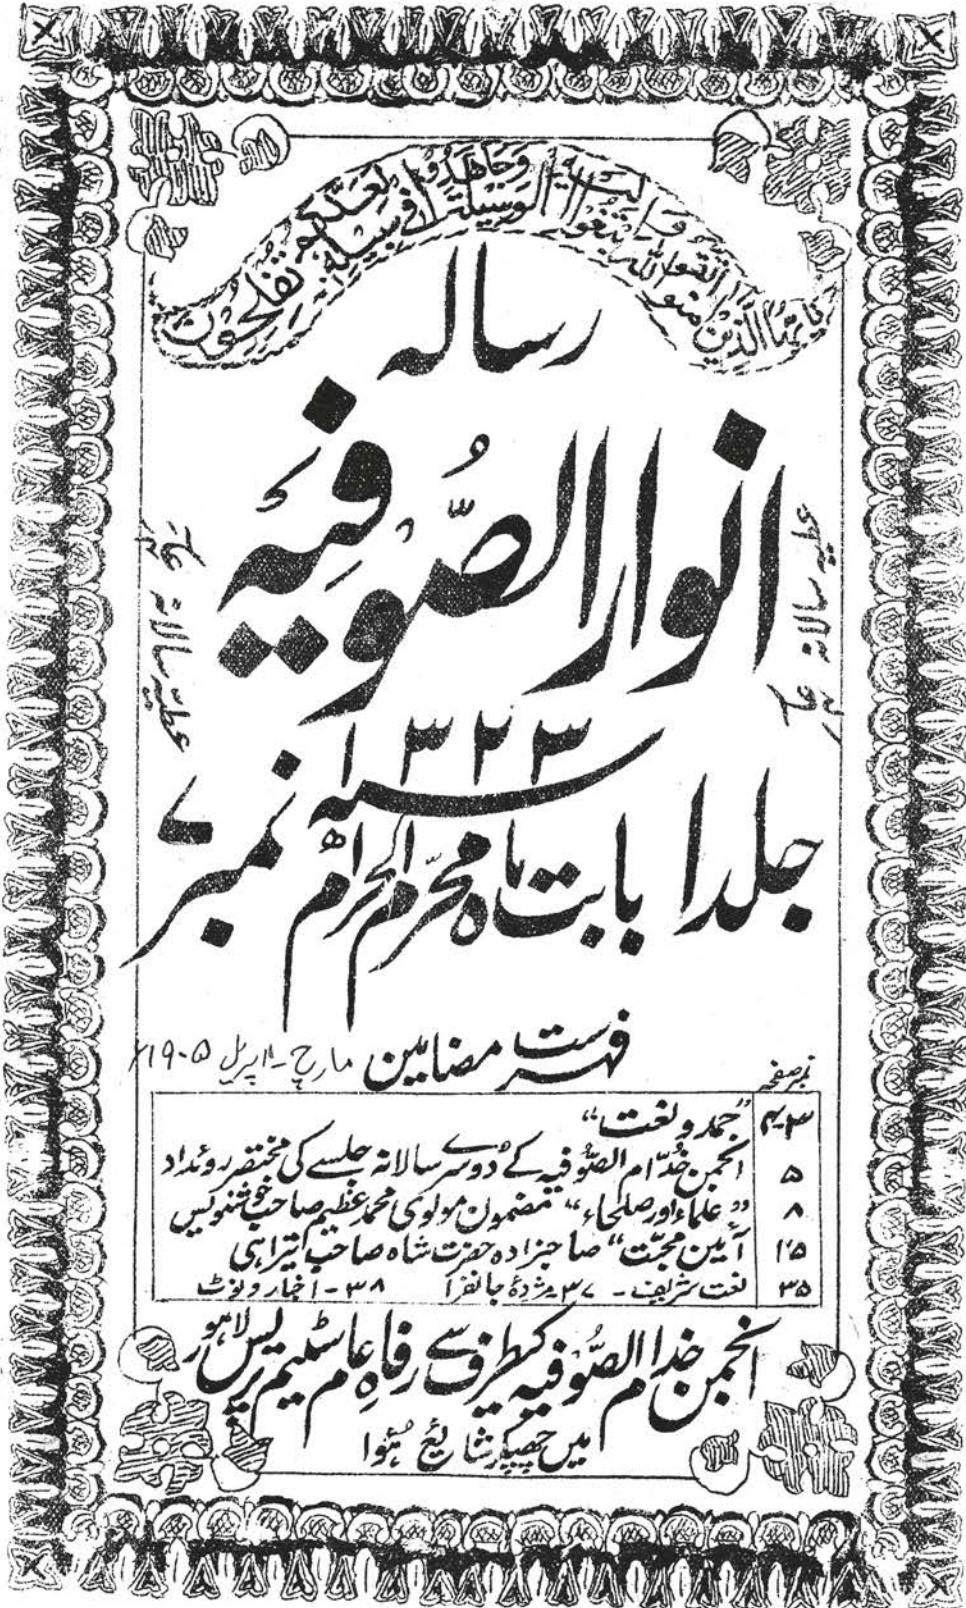 یایها الذین امنوا اتقوا الله وابتغوا الیه الوسیلة وجاهدوا فی سبیله لعلکم تفلحون
رسالہ
انوار الصّوفیہ
سالانہ
عطیہ سالانہ
۱۳۲۳
جلد ۱ بابت ماہ محرّم الحرام سنہ ھ نمبر ۷
فہرست مضامین مارچ - اپریل ۱۹۰۵ء
نمبر صفحہ
۳-۴ "حمد و نعت"
۵ انجمن خدّام الصّوفیہ کے دُوسرے سالانہ جلسے کی مختصر روئداد
۸ "علماء اور صلحاء" مضمون مولوی محمد عظیم صاحب خوشنویس
۲۵ آئین محبّت" صاحبزادہ حضرت شاہ صاحب تیراہی
۳۵ نعت شریف - ۳۷ مژدۂ جانفزا ۳۸ - اخبار و نوٹ
انجمن خدام الصّوفیہ کیطرف سے رفاہِ عام سٹیم پریس لاہور
میں چھپکر شائع ہُوا